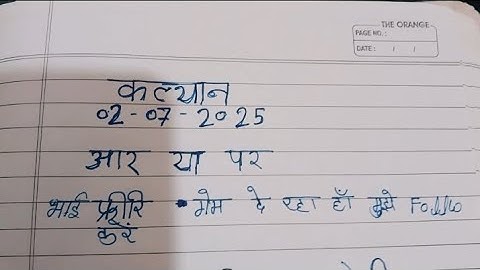 THE ORANGE
PAGE NO.:
DATE: / /
कल्यान
02-07-2025
आर या पर
भाई फ्रीरि गेम दे रहा हाँ मुझे Follo
करें